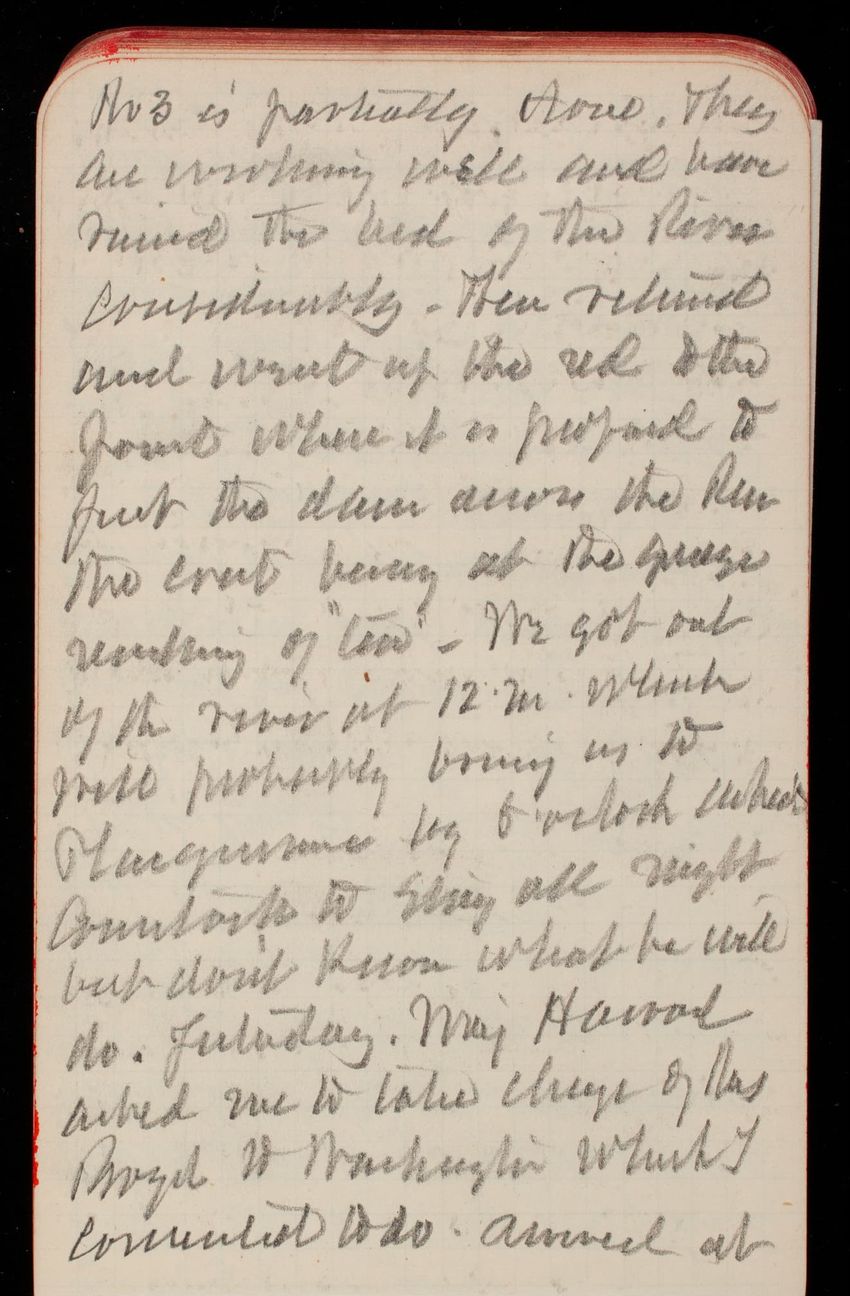 No 3 is partially done. They
are working well and have
raised the bed of the River
considerably - Then returned
and went up the red to the
point where it is proposed to
put the dam across the River
the crest being at the guage
reading of "ten" - We got out
of the river at 12 m. which
will probably bring us to
Plaquemine by 5 o'clock asked
Comstock to stay all night
but don't know what he will
do. Maj Howard
asked me to take charge of
to Washington which I
consented to do. arrived at